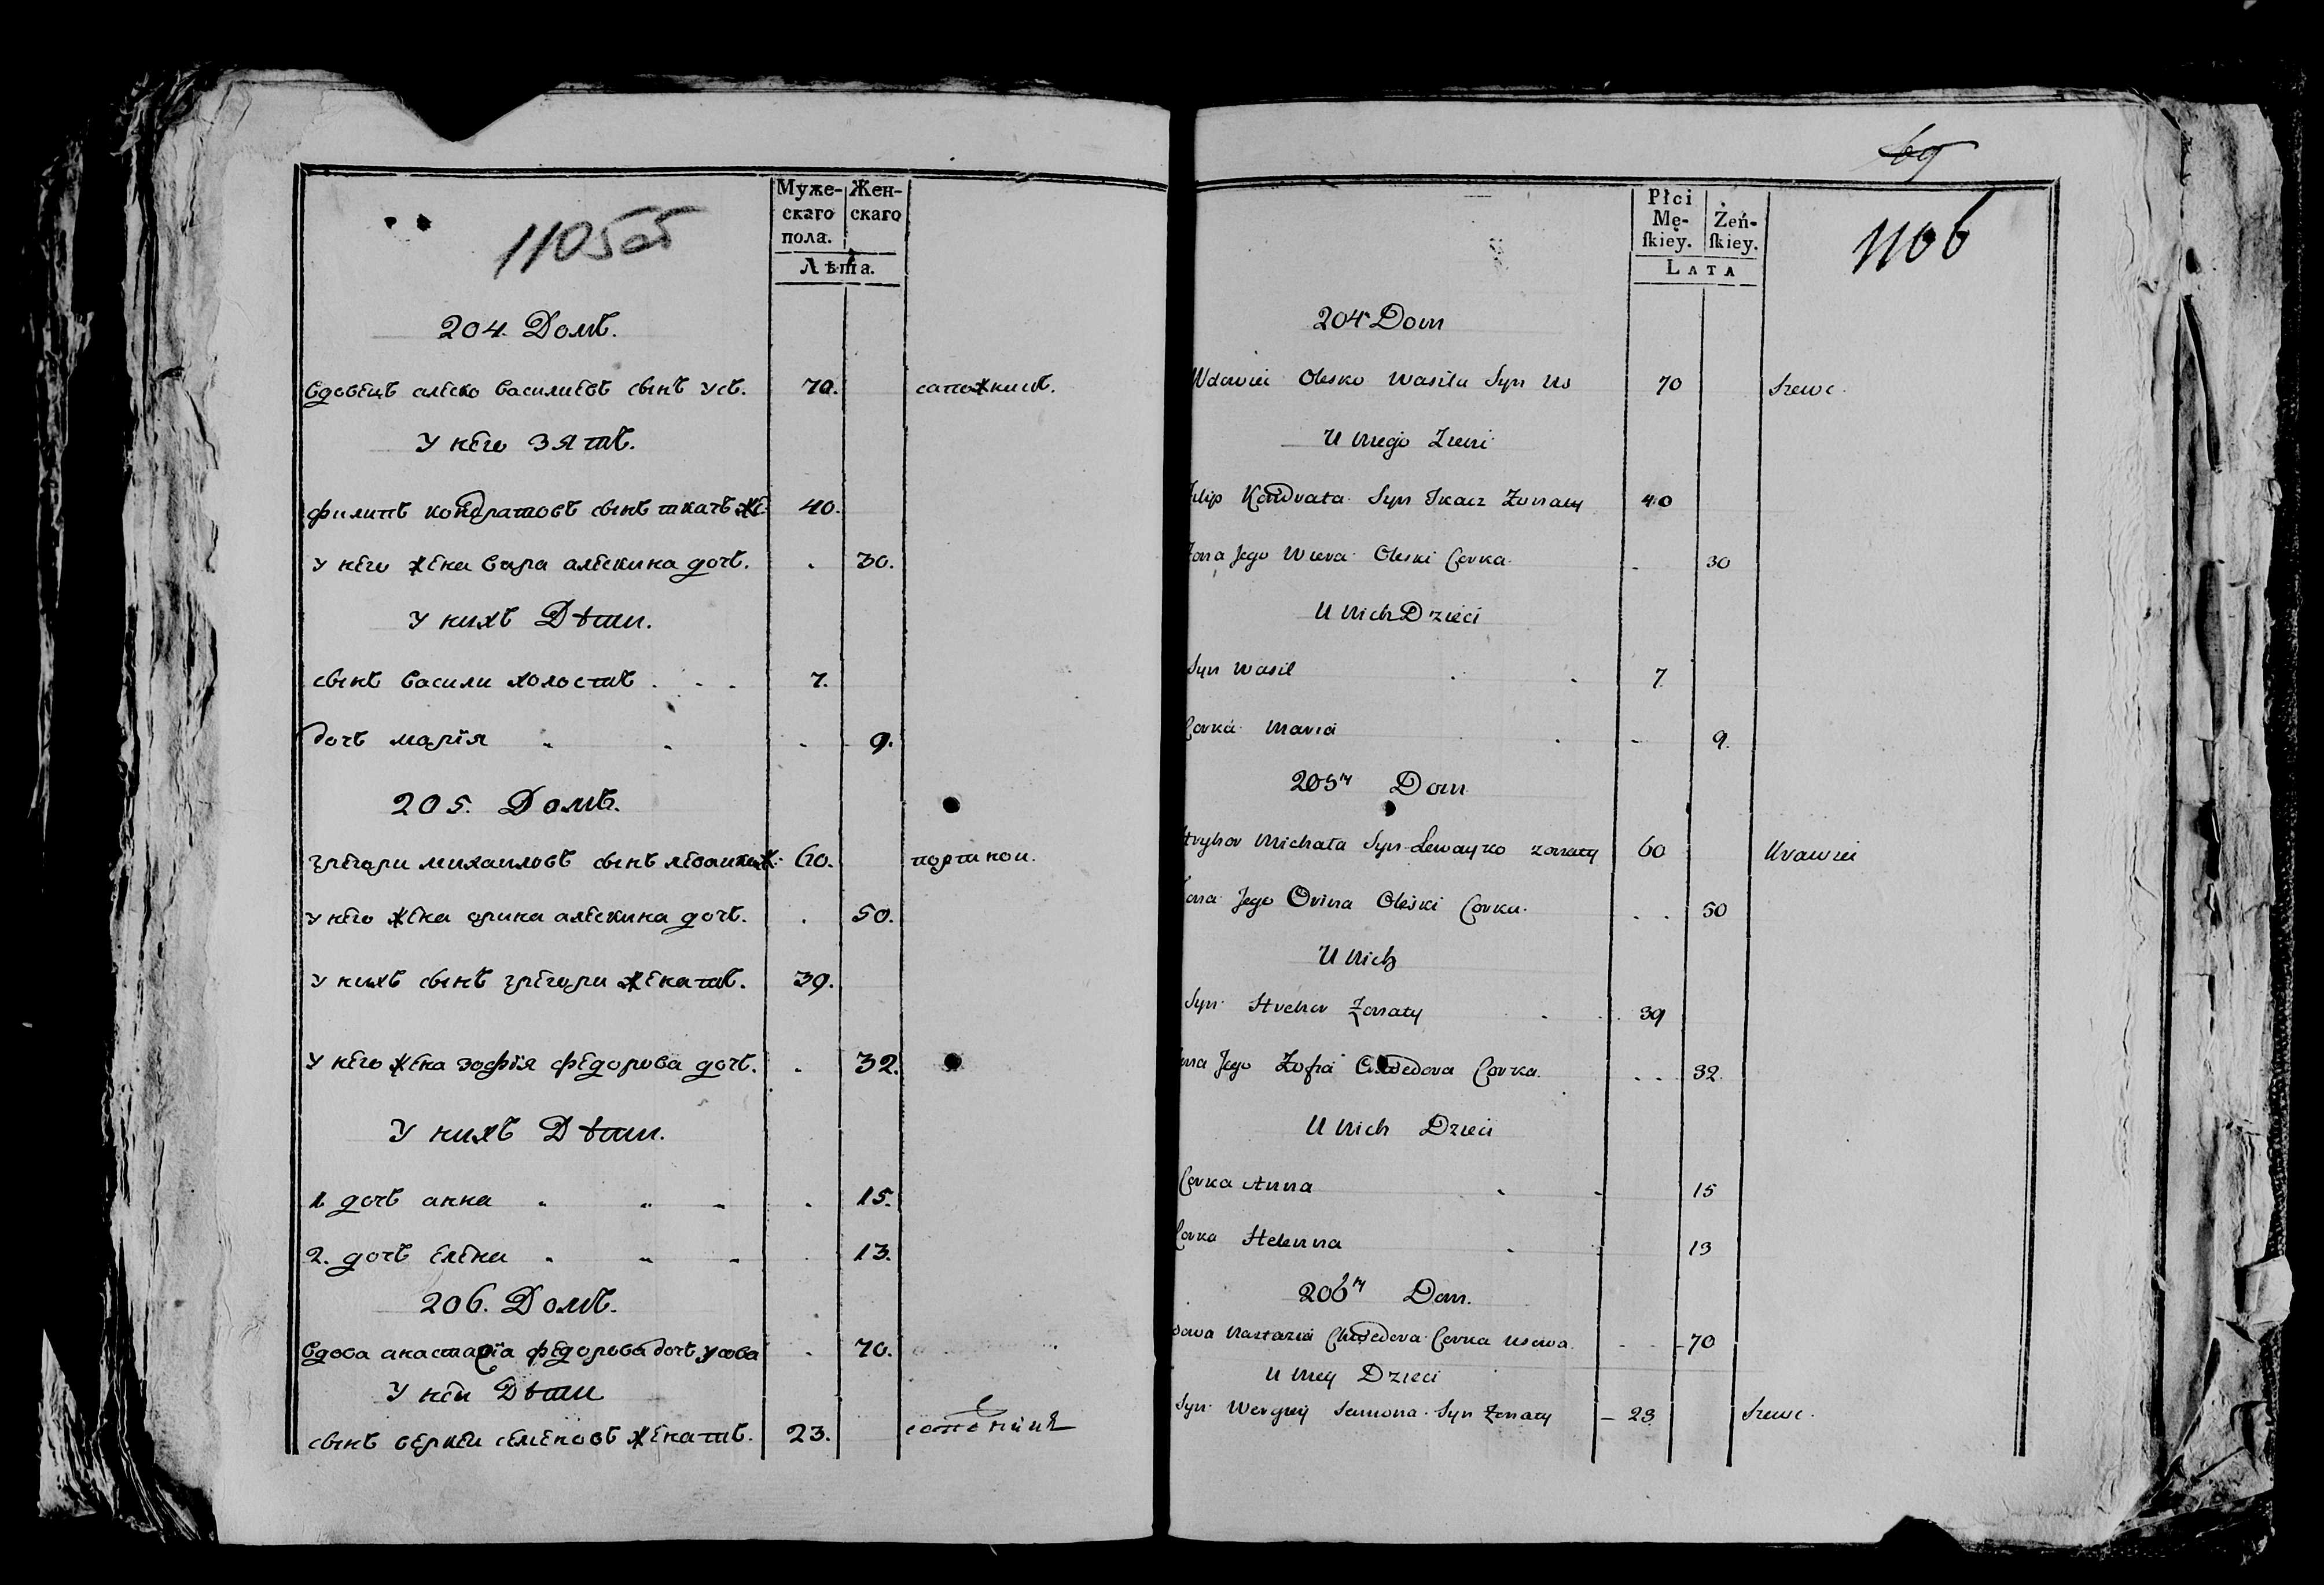 1105об
Муже-
скаго
пола.
Жен-
скаго
Лѣта.
204. Домъ.
Вдовецъ алеско василиевъ сынъ усъ. 70. сапожникъ.
У него зять.
филипъ кондратовъ сынъ ткачъ же. 40.
у него жена вара алескина дочь. . 30.
у нихъ Дѣти.
сынъ васили холостъ . . . 7.
дочь марїя . . . 9.
205. Домъ.
григори михаиловъ сынъ ж. 60. портнои.
у него жена орина алескина дочь. . 50.
у нихъ сынъ григори женатъ. 39.
У него жена зофїя федорова дочь. . 32.
У нихъ Дѣти.
1 дочь анна . . . . 15.
2. дочь елена . . . . 13.
206. Домъ.
Вдова анастасїа федорова дочь усова . 70.
У неи Дѣти
сынъ сергеи семеновъ женатъ. 23.
69
Płci
Mę-
ſkiey.
Żeń-
ſkiey.
LATA
1106
204 Dom
Wdowiec Olesko Wasila Syn Us 70 Szewc.
U niego Zienc
Filip Kondrata Syn Tkacz Zonaty 40
Zona Jego Wiera Oleski Corka . 30
U Nich Dzieci
Syn Wasil . . 7
Corka Maria . - 9.
205ty Dom
Hryhor Michała Syn Lewayko zonaty 60 Krawiec
Zona Jego Orina Oleski Corka . . 50
U Nich
Syn Hrehor Zonaty . . 39
Zona Jego Zofia Chwedora Corka . . . 32.
U Nich Dzieci
Corka Anna . . 15
Corka Helenna . . 13
206ty Dom.
Wdowa Nastazia Chwedora Corka Usowa . . 70
U Niey Dzieci
Syn Siemiona Syn Zonaty - 23 Szewc.